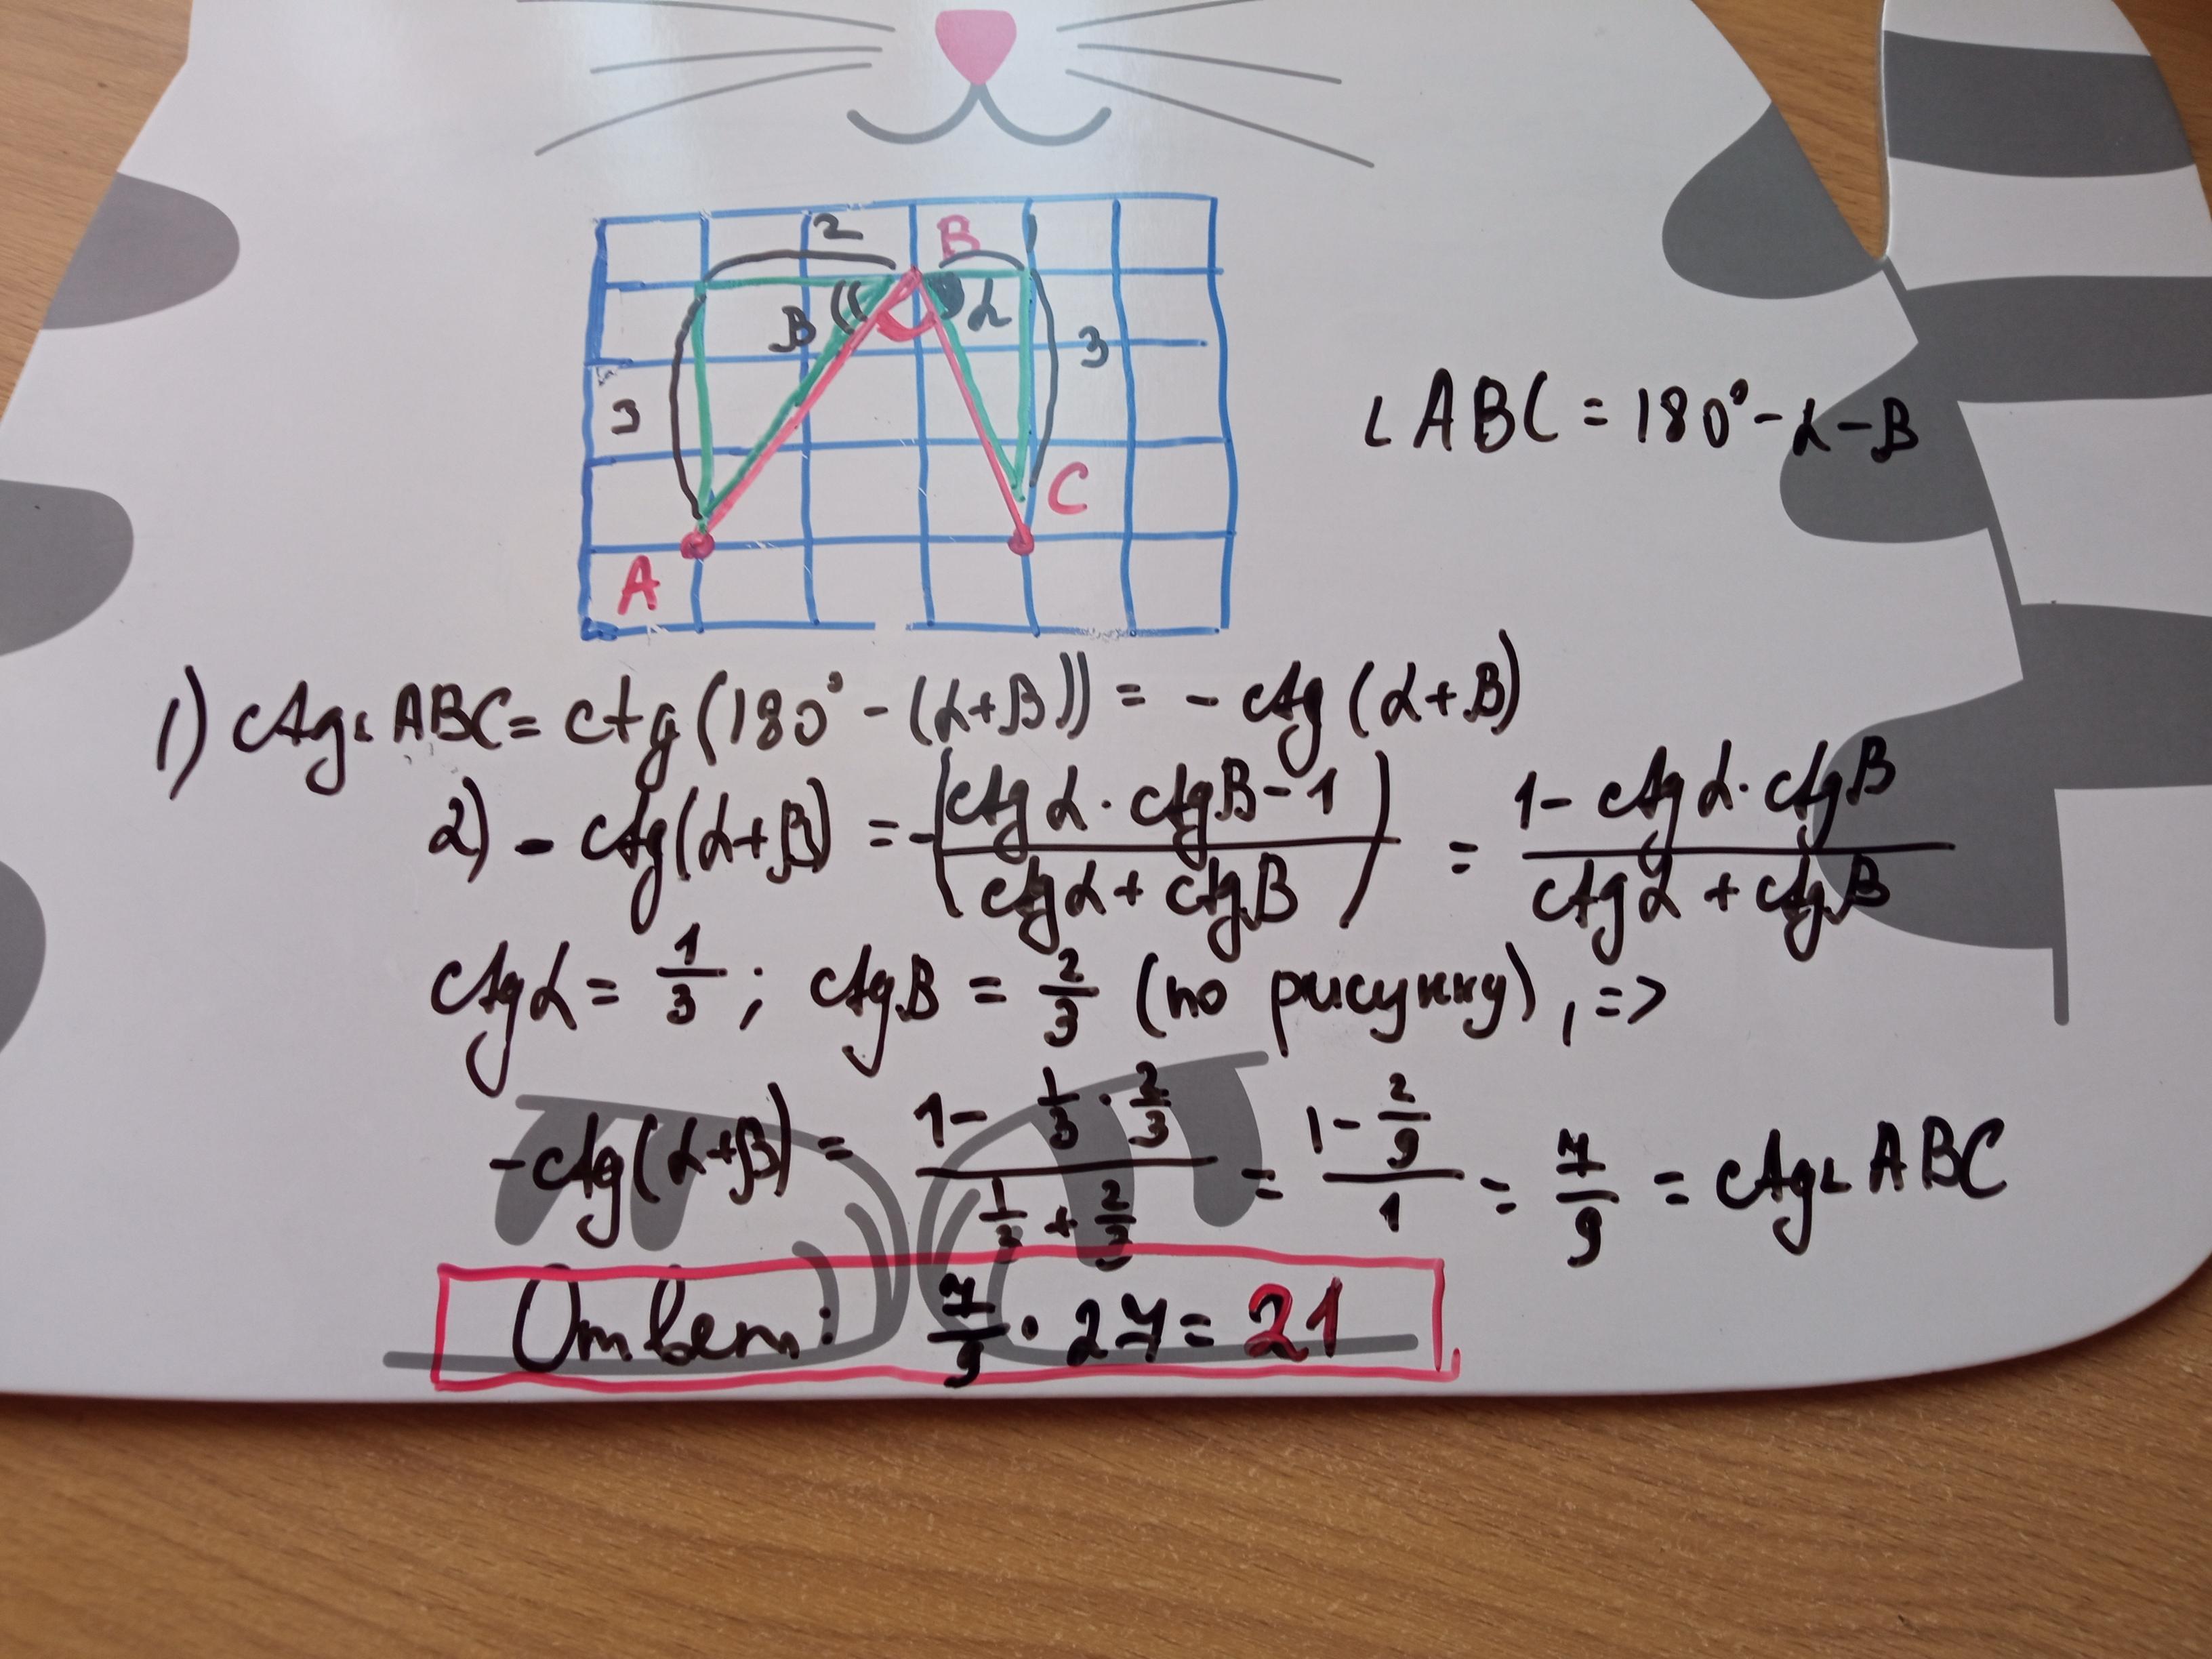 2
B
1
B
α
3
3
C
A
∠ABC = 180° - α - β
1) ctg∠ABC = ctg(180° - (α+β)) = - ctg(α+β)
2) - ctg(α+β) = -(ctgα · ctgβ - 1 / ctgα + ctgβ) = 1 - ctgα · ctgβ / ctgα + ctgβ
ctgα = 1/3 ; ctgβ = 2/3 (по рисунку), =>
-ctg(α+β) = 1 - 1/3 · 2/3 / 1/3 + 2/3 = 1 - 2/9 / 1 = 7/9 = ctg∠ABC
Ответ: 7/9 · 27 = 21